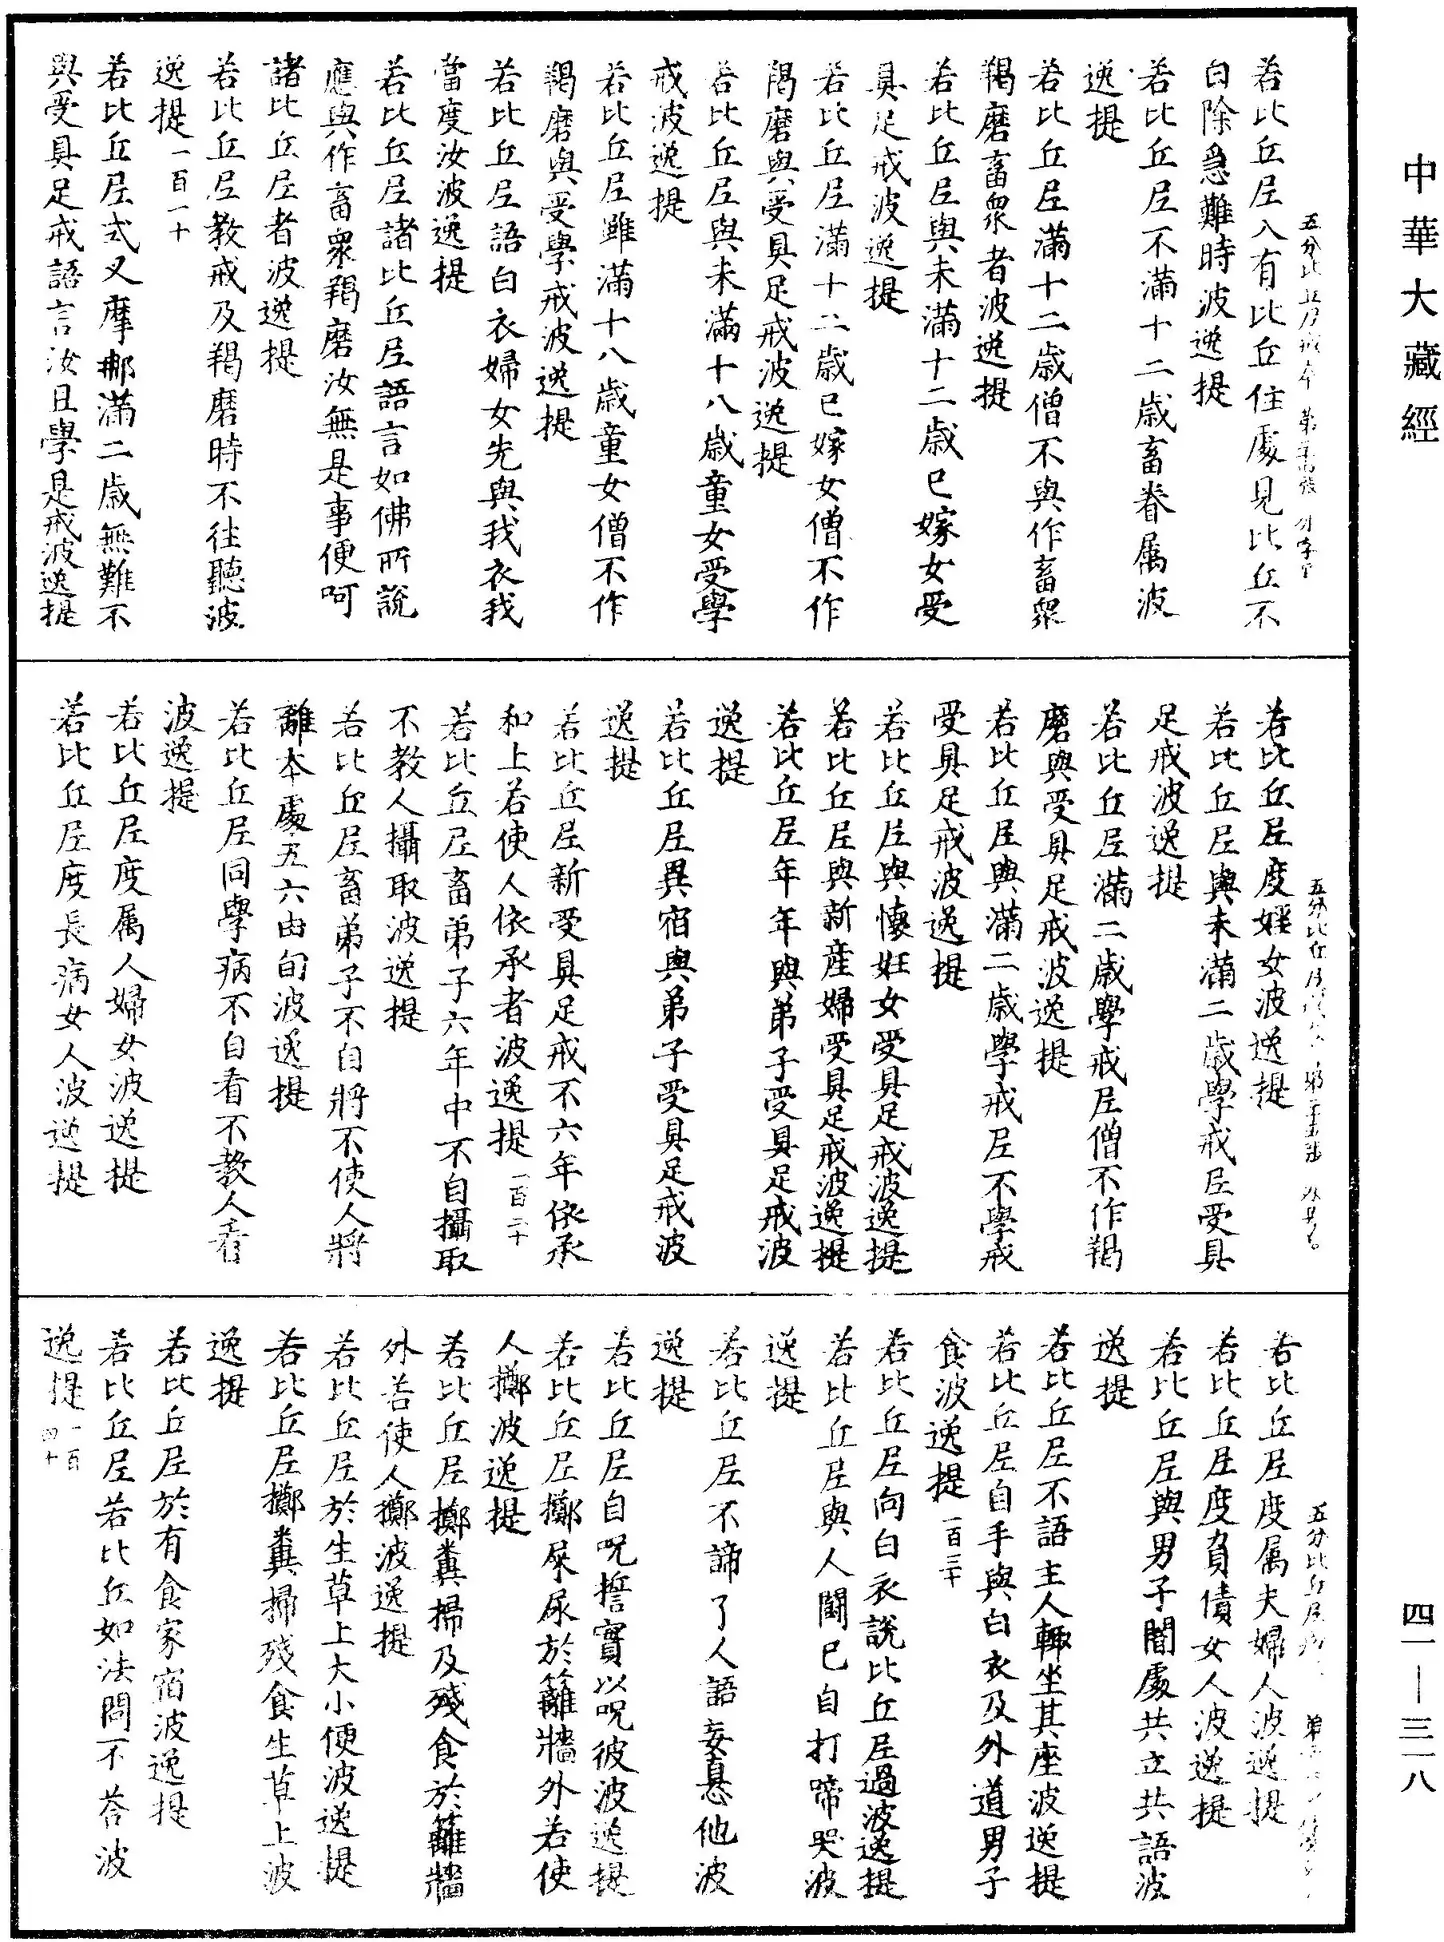 中華大藏經
四一—三一八
若比丘尼入有比丘住處見比丘不
白除急難時波逸提
若比丘尼不滿十二歲畜眷属波
逸提
若比丘尼滿十二歲僧不與作畜眾
羯磨畜眾者波逸提
若比丘尼與未滿十二歲已嫁女受
具足戒波逸提
若比丘尼滿十二歲已嫁女僧不作
羯磨與受具足戒波逸提
若比丘尼與未滿十八歲童女受學
戒波逸提
若比丘尼雖滿十八歲童女僧不作
羯磨與受學戒波逸提
若比丘尼語白衣婦女先與我衣我
當度汝波逸提
若比丘尼諸比丘尼語言如佛所說
應與作畜眾羯磨汝無是事便呵
諸比丘尼者波逸提
若比丘尼教戒及羯磨時不往聽波
逸提一百一十
若比丘尼式叉摩那滿二歲無難不
與受具足戒語言汝且學是戒波逸提
若比丘尼度婬女波逸提
若比丘尼與未滿二歲學戒尼受具
足戒波逸提
若比丘尼滿二歲學戒尼僧不作羯
磨與受具足戒波逸提
若比丘尼與滿二歲學戒尼不學戒
受具足戒波逸提
若比丘尼與懷妊女受具足戒波逸提
若比丘尼與新產婦受具足戒波逸提
若比丘尼年年與弟子受具足戒波
逸提
若比丘尼異宿與弟子受具足戒波
逸提
若比丘尼新受具足戒不六年依承
和上若使人依承者波逸提一百二十
若比丘尼畜弟子六年中不自攝取
不教人攝取波逸提
若比丘尼畜弟子不自將不使人將
離本處五六由旬波逸提
若比丘尼同學病不自看不教人看
波逸提
若比丘尼度属人婦女波逸提
若比丘尼度長病女人波逸提
若比丘尼度属夫婦人波逸提
若比丘尼度負債女人波逸提
若比丘尼與男子闇處共立共語波
逸提
若比丘尼不語主人輙坐其座波逸提
若比丘尼自手與白衣及外道男子
食波逸提一百三十
若比丘尼向白衣說比丘尼過波逸提
若比丘尼與人鬪已自打啼哭波
逸提
若比丘尼不諦了人語妄瞋他波
逸提
若比丘尼自呪誓實以呪彼波逸提
若比丘尼擲屎尿於籬牆外若使
人擲波逸提
若比丘尼擲糞掃及殘食於籬牆
外若使人擲波逸提
若比丘尼於生草上大小便波逸提
若比丘尼擲糞掃殘食生草上波
逸提
若比丘尼於有食家宿波逸提
若比丘尼若比丘如法問不荅波
逸提一百四十